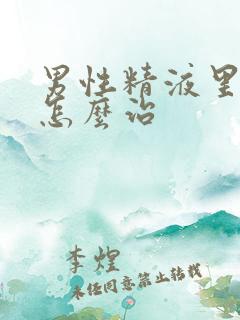 男性精液里
怎麽治
李煌
未经同意禁止转载